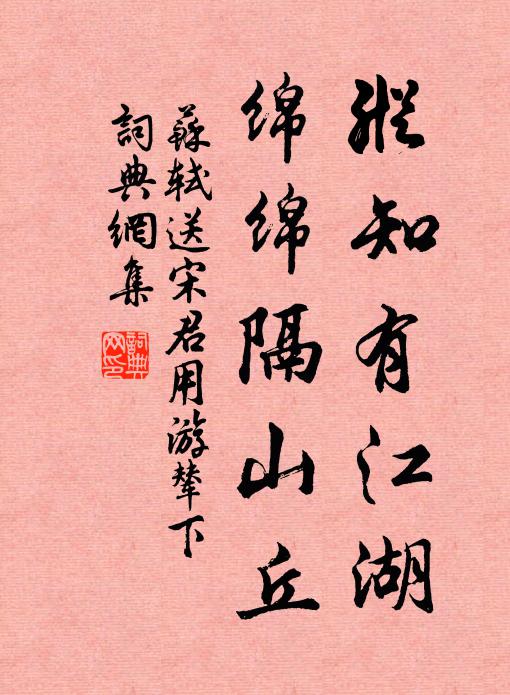 縱知有江湖
绵绵隔山丘
蘇軾送宋君用游輦下
詞典網集
詞典网印